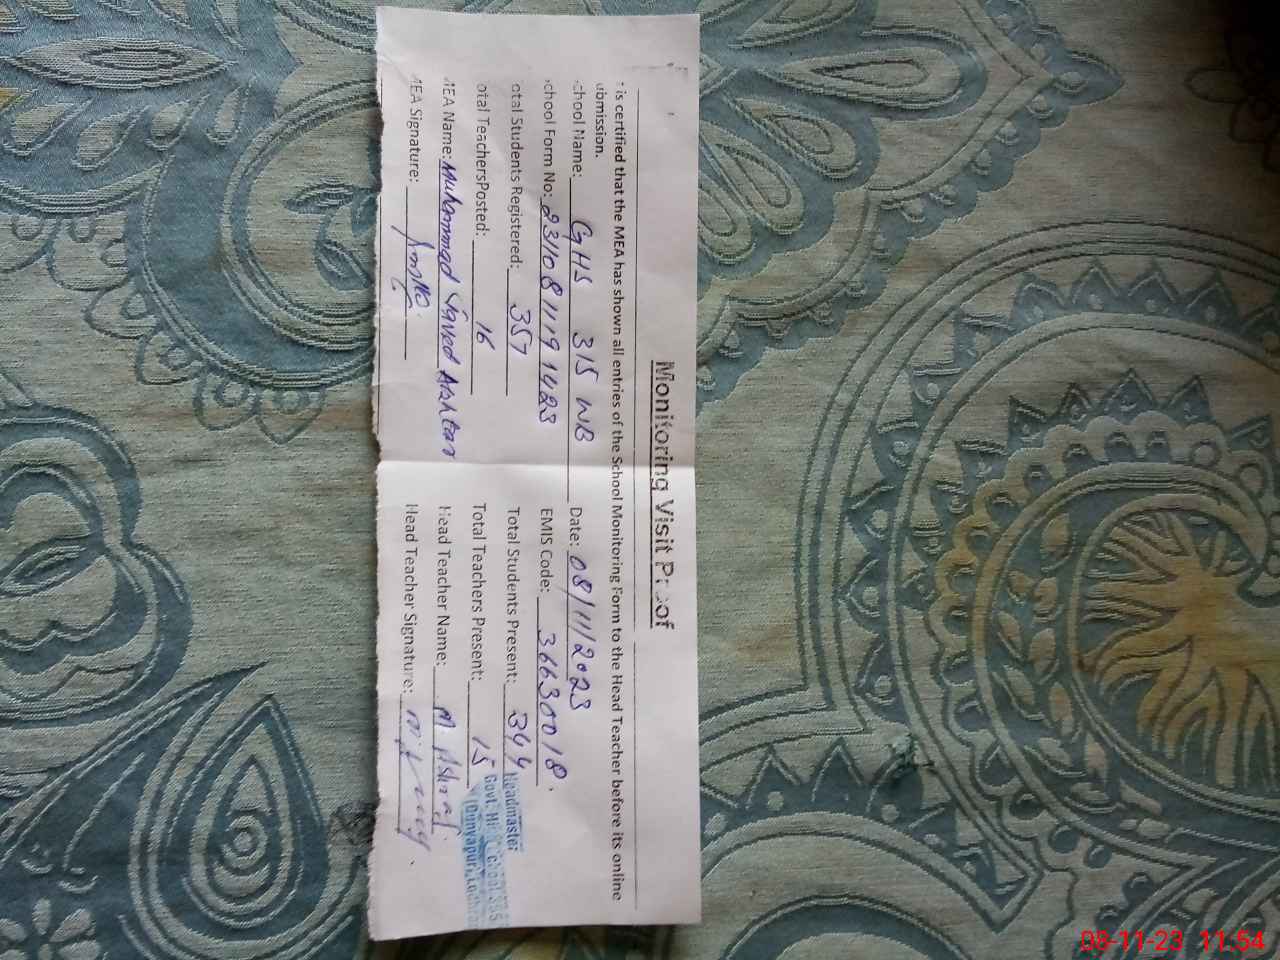 Monitoring Visit Proof
is certified that the MEA has shown all entries of the School Monitoring Form to the Head Teacher before its online
ubmission.
chool Name: GHS 315 WB Date: 08/11/2023
chool Form No: 231081119 1423 EMIS Code: 36630018.
otal Students Registered: 357 Total Students Present: 344
otal TeachersPosted: 16 Total Teachers Present: 15
MEA Name: Muhammad Javed Ashtar Head Teacher Name: M. Ashraf.
MEA Signature: Head Teacher Signature:
Headmaster
Govt. High School
(Dunyapur, Lodhran
08-11-23 11:54